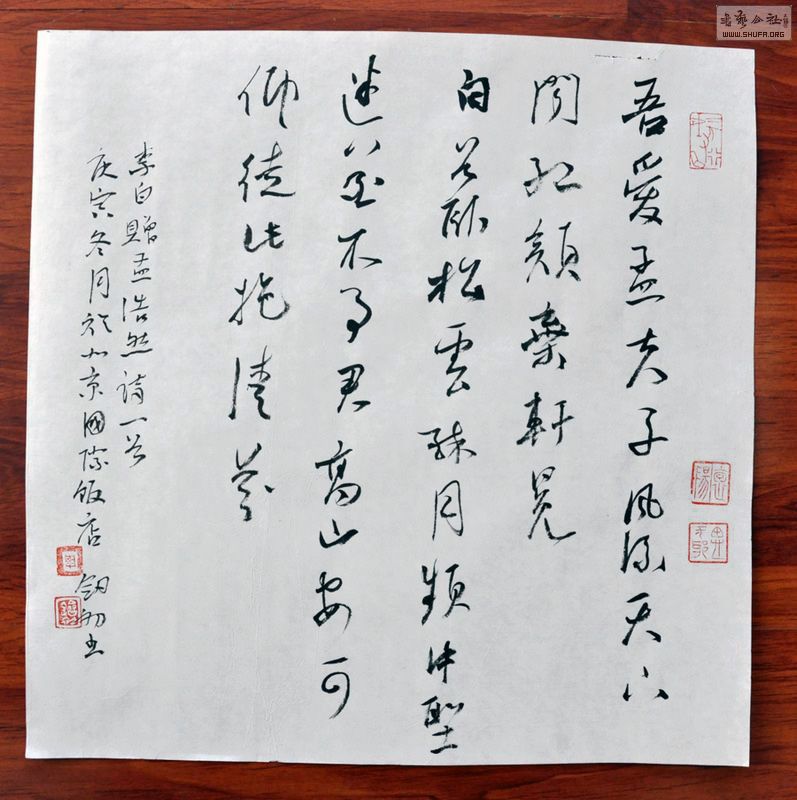 吾愛孟夫子風流天下
聞紅顏棄軒冕
白首卧松雲醉月頻中聖
迷花不事君高山安可
仰徒此挹清芬
李白贈孟浩然詩一首
庚寅冬月於北京國際飯店
書藝公社
WWW.SHUFA.ORG